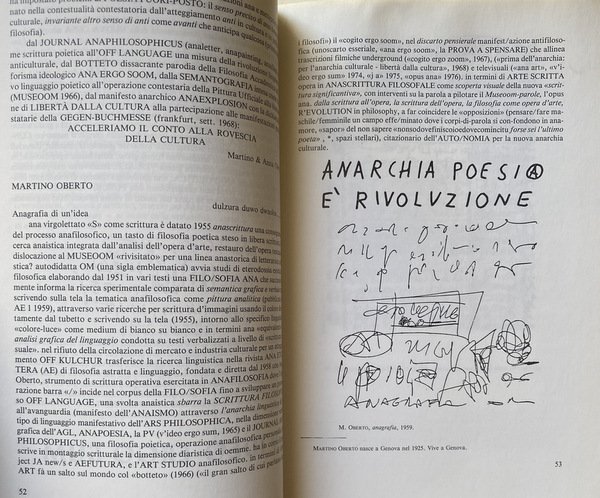 nato nella contestualità contestatoria dall'atteggiamento
culturale, invariante altro senso di anti come avanti che anticipa qualcosa
filosofia).
dal JOURNAL ANAPHILOSOPHICUS (analetter, anapainting,
me scrittura poietica all'OFF LANGUAGE una misura della rivoluz
anticulturale, dal BOTTETO dissacrante parodia della Filosofia Accade
forisma ideologismo ANA ERGO SOOM, dalla SEMANTOGRAFIA
vo linguaggio poietico all'operazione contestaria della Pittura Ufficiale alla
(MUSEOOM 1966), dal manifesto anarchico ANAEXPLOSION con il
di LIBERTÀ DALLA CULTURA alla partecipazione alle manifestazioni
statarie della GEGEN-BUCHMESSE (frankfurt, sett. 1968):
ACCELERIAMO IL CONTO ALLA ROVESCIA
DELLA CULTURA
Martino & Anna
MARTINO OBERTO
dulzura duwo
Anagrafia di un'idea
ana virgolettato «S» come scrittura è datato 1955 anascrittura una
del processo anafilosofico, un tasto di filosofia poetica steso in libera scrittura
cerca anaistica integrata dall'analisi dell'opera d'arte, restauro dell'opera
dislocazione al MUSEOOM «rivisitato» per una linea anastorica di letteratura
tica? autodidatta OM (una sigla emblematica) avvia studi di eterodossia
filosofica elaborando dal 1951 in vari testi una FILO/SOFIA ANA che
mente informa la ricerca sperimentale comparata di semantica grafica e
scrivendo sulla tela la tematica anafilosofica come pittura analitica (pubbl
AE 1 1959), attraverso varie ricerche per scrittura d'immagine usando il colore
tamente dal tubetto e scrivendo su la tela (1955), intorno allo specifico
«colore-luce» come medium di bianco su bianco e in termini ana
analisi grafica del linguaggio condotta su testi verbalizzati a livello di
suale». nel rifiuto della circolazione di mercato e industria culturale per un
mento OFF KULCHUR trasferisce la ricerca linguistica nella rivista ANA
TERA (AE) di filosofia astratta e linguaggio, fondata e diretta dal 1958
Oberto, strumento di scrittura operativa esercitata in ANAFILOSOFIA dove
razione barra «/» incide nel corpus della FILO/SOFIA fino a sviluppare un
so OFF LANGUAGE, una svolta anaistica sbarra la SCRITTURA FILOSOFICA
all'avanguardia (manifesto dell'ANAISMO) attraverso l'anarchia linguistica
tipo di linguaggio manifestativo dell'ARS PHILOSOPHICA, nella dimensione
grafica dell'AGL, ANAPOESIA, la PV (video ergo, 1965) e il JOURNAL
PHILOSOPHICUS, una filosofia poietica, operazione anafilosofica
scrive in montaggio scritturale la dimensione diaristica di oemme. ha in
ject JA new/s e AEFUTURA, e l'ART STUDIO anafilosofico. in termini
ART fà un salto nel mondo col «botteto» (1966) («il gran salto di
52
i filosofi») il «cogito ergo soom», nel discarto pensierale manifest/azione antifiloso-
fica (unoscarto esseriale, «ana ergo soom», la PROVA A SPENSARE) che allinea
trascrizioni filmiche underground («cogito ergo soom», 1967), («prima dell'anarchia:
per l'anarchia culturale - libertà dalla cultura», 1968) e televisuali («ana art», «v'i-
deo ergo sum» 1974, «j a» 1975, «opus ana» 1976). in termini di ARTE SCRITTA
opera in ANASCRITTURA FILOSOFALE come scoperta visuale della nuova «scrit-
tura significante», con interventi su la parola a pilotare il Museoom-parole, l'opus
ana, dalla scrittura all'opera, la scrittura dell'opera, la filosofia come opera d'arte,
R'EVOLUTION in philosophy, a far coincidere le «opposizioni» (pensare/fare ma-
schile/femminile un campo effe/minato dove i corpi-di-parola si con-fondono in ana-
morre, «sapor» del non sapere «nonsodovefiniscoioedovecomincitu forse sei l'ultimo
poeta», *, spazi stellari), citazionario dell'AUTO/NOMIA per la nuova anarchia
culturale.
ANARCHIA POESIA
E' RIVOLUZIONE
ANAGRAFIA
M. OBERTO, anagrafia, 1959.
MARTINO OBERTO nasce a Genova nel 1925. Vive a Genova.
53